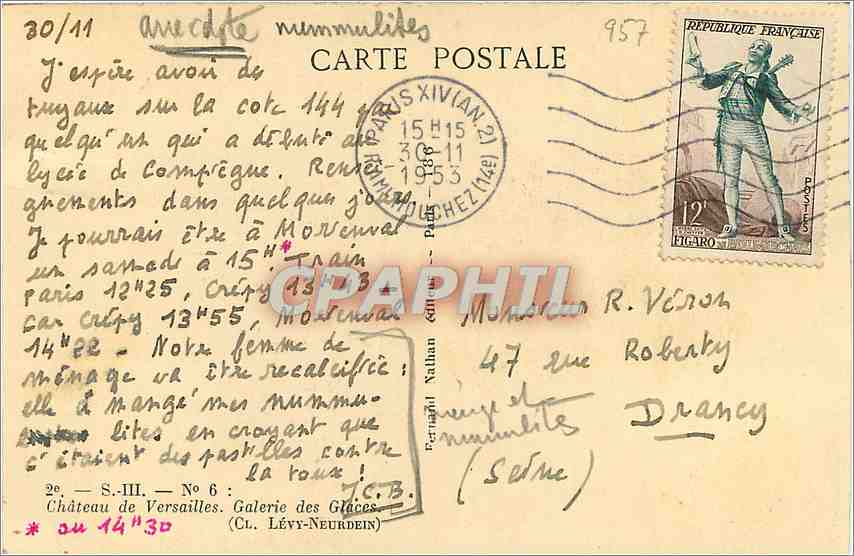 30/11 anecdote nummulites
957
CARTE POSTALE
J'espère avoir des
tuyaux sur la cote 144 par
quelqu'un qui a débuté au
lycée de Compiègne. Rensei
gnements dans quelques jours.
Je pourrais être à Morienval
un samedi à 15H* Train
Paris 12H25, Crépy 13H43 -
car Crépy 13H55, Morienval
14H22 - Notre femme de
ménage va être recalcifiée :
elle a mangé mes nummu-
lites en croyant que
c'étaient des pastelles contre
la toux !
J.C.B.
2e. — S.-III. — No 6 :
Château de Versailles. Galerie des Glaces.
(CL. LÉVY-NEURDEIN)
* ou 14H30
PARIS XIV (AN. 2)
15H15
30-11
1953
R. MOUCHEZ (14e)
RÉPUBLIQUE FRANÇAISE
POSTES
12F
FIGARO
Fernand Nathan éditeur - Paris - 186
CPARHIL
Monsieur R. Véron
47 rue Roberty
Drancy
(Seine)
nummulites